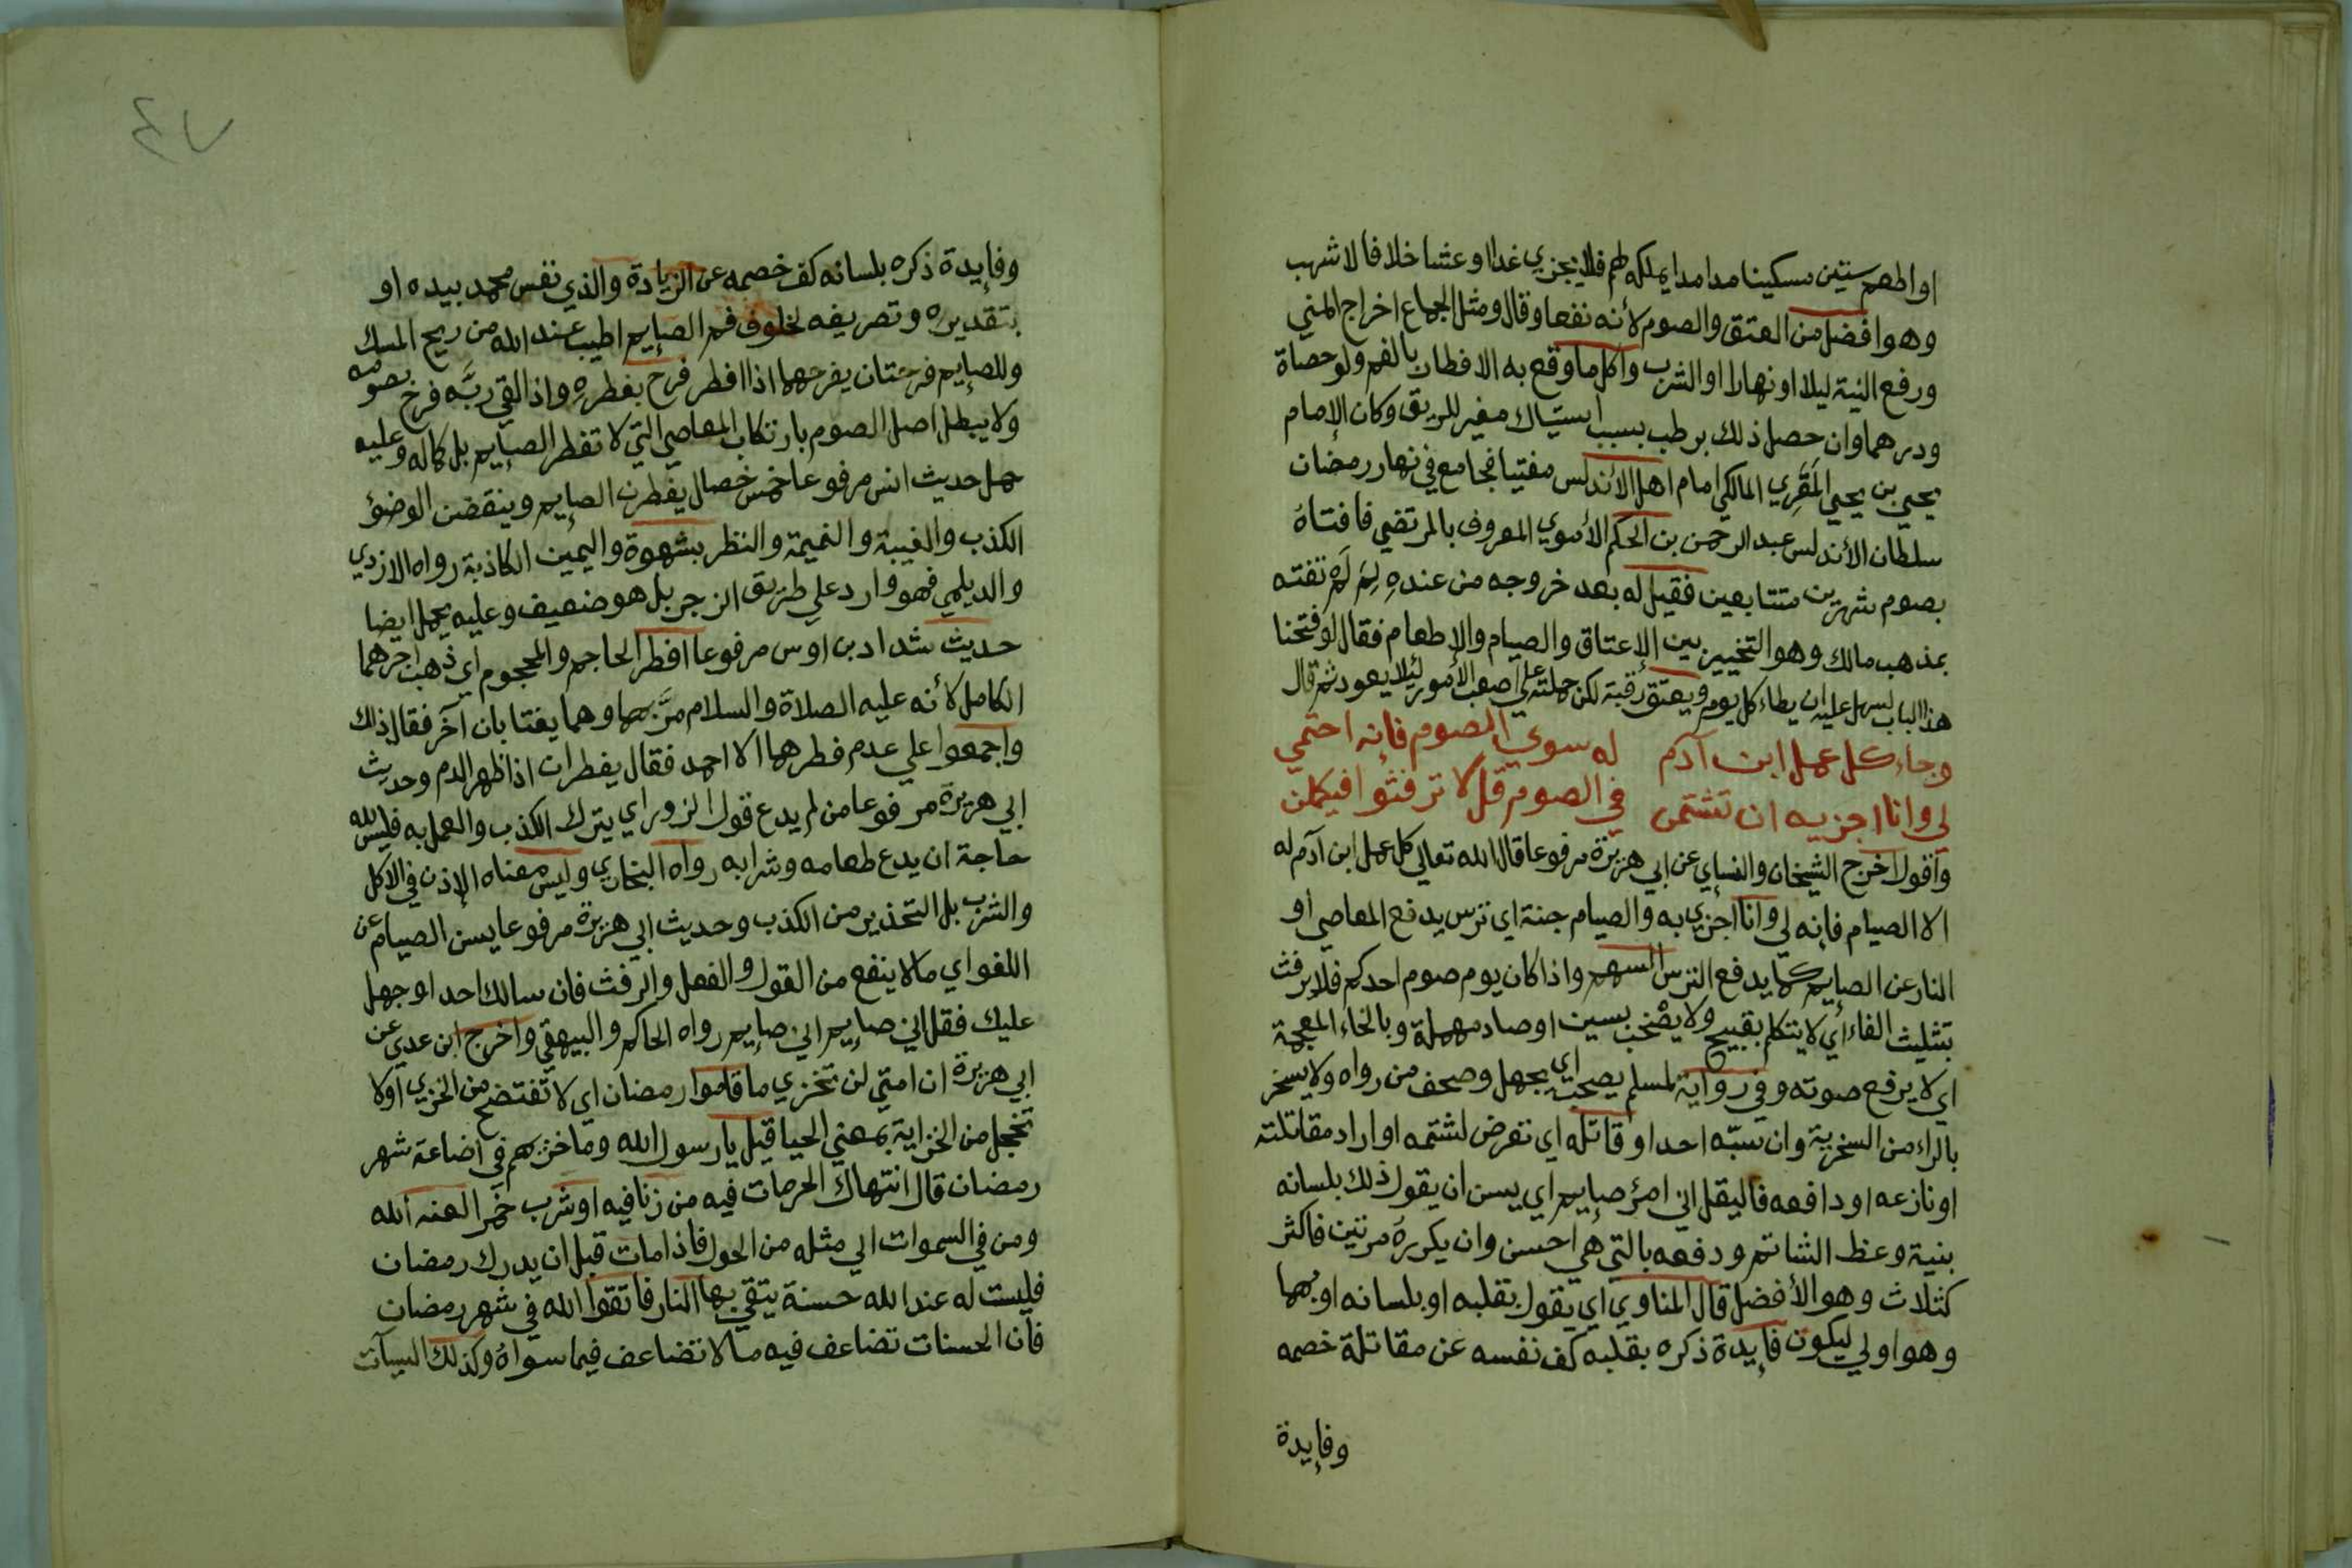 او اطعم ستين مسكينا مدا مدا يملكه لهم فلا يجزي غدا او عشا خلافا لاشهب
وهو افضل من العتق والصوم لأنه نفعا وقال ومثل الجماع اخراج المني
ورفع النية ليلا او نهارا او الشرب واكل ما وقع به الافطار بالفم ولو حصاة
ودرهما وان حصل ذلك برطب بسبب استياك مغير للريق وكان الإمام
يحيى بن يحيى المَقرِي المالكي امام اهل الأندلس مفتيا فجامع في نهار رمضان
سلطان الأندلس عبد الرحمن بن الحكم الأموي المعروف بالمرتضي فافتاهُ
بصوم شهرين متتابعين فقيل له بعد خروجه من عندهِ لِمَ لَمْ تفته
بمذهب مالك وهو التخيير بين الإعتاق والصيام والإطعام فقال لو فتحنا
هذا الباب لسهل عليه ان يطاء كل يوم ويعتق رقبة لكن حملته علي اصعب الأمور ليلا يعود ثم قال
وجاء كل عمل ابن آدم له سوي الصوم فإنه احتمي
لي وانا اجزيه ان تشتمن في الصوم قل لا ترفثوا فيكملن
وأقول اخرج الشيخان والنساي عن ابي هريرة مرفوعا قال الله تعالي كل عمل ابن آدم له
الا الصيام فإنه لي وانا اجزي به والصيام جنة اي ترس يدفع المعاصي او
النار عن الصايم كما يدفع الترس السهم واذا كان يوم صوم احدكم فلا يرفث
بتثليث الفاء اي لا يتكلم بقبيح ولا يصْخب بسين او صاد مهملة وبالخاء المعجمة
اي لا يرفع صوته وفي رواية لمسلم يصحب اي يجهل وصحف من رواه ولا يسخر
بالراء من السخرية وان سبّه احد او قاتله اي تعرض لشتمه او اراد مقاتلته
او نازعه او دافعه فاليقل اني امرؤ صايم اي يسن ان يقول ذلك بلسانه
بنية وعظ الشاتم ودفعه بالتي هي احسن وان يكررهُ مرتين فاكثر
كثلاث وهو الأفضل قال المناوي اي يقول بقلبه او بلسانه او بهما
وهو اولي ليكون فايدة ذكره بقلبه كف نفسه عن مقاتلة خصمه
وفايدة
٤٧
وفايدة ذكره بلسانه كف خصمه عن الزيادة والذي نفس محمد بيده او
بتقديره وتصريفه لخلوف فم الصايم اطيب عند الله من ريح المسك
وللصايم فرحتان يفرحهما اذا افطر فرح بفطرهِ واذا لقي ربَّه فرح بصومه
ولا يبطل اصل الصوم بارتكاب المعاصي التي لا تفطر الصايم بل كماله وعليه
حمل حديث انس مرفوعا خمس خصال يفطرن الصايم وينقضن الوضؤ
الكذب والغيبة والنميمة والنظر بشهوة واليمين الكاذبة رواه الازدي
والديلمي فهو وارد علي طريق الزجر بل هو ضعيف وعليه يحمل ايضا
حديث شداد بن اوس مرفوعا افطر الحاجم والمحجوم اي ذهب اجرهما
الكامل لأنه عليه الصلاة والسلام مرَّ بهما وهما يغتابان آخر فقال ذلك
واجمعوا علي عدم فطرهما الا احمد فقال يفطران اذا ظهر الدم وحديث
ابي هريرة مرفوعا من لم يدع قول الزور اي يترك الكذب والعمل به فليس لله
حاجة ان يدع طعامه وشرابه رواه البخاري وليس معناه الإذن في الاكل
والشرب بل التحذير من الكذب وحديث ابي هريرة مرفوعا يسن الصيام عن
اللغو اي ما لا ينفع من القول والفعل والرفث فان سالك احد او جهل
عليك فقل اني صايم اني صايم رواه الحاكم والبيهقي واخرج ابن عدي عن
ابي هريرة ان امتي لن تخزي ما قاموا رمضان اي لا تفتضح من الخزي او لا
تخجل من الخزاية بمعني الحيا قيل يا رسول الله وما خزيهم في اضاعة شهر
رمضان قال انتهاك الحرمات فيه من زنا فيه او شرب خمرا لعنه الله
ومن في السموات الي مثله من الحول فاذا مات قبل ان يدرك رمضان
فليست له عند الله حسنة يتقي بها النار فاتقوا الله في شهر رمضان
فان الحسنات تضاعف فيه ما لا تضاعف فيما سواهُ وكذلك السيآت